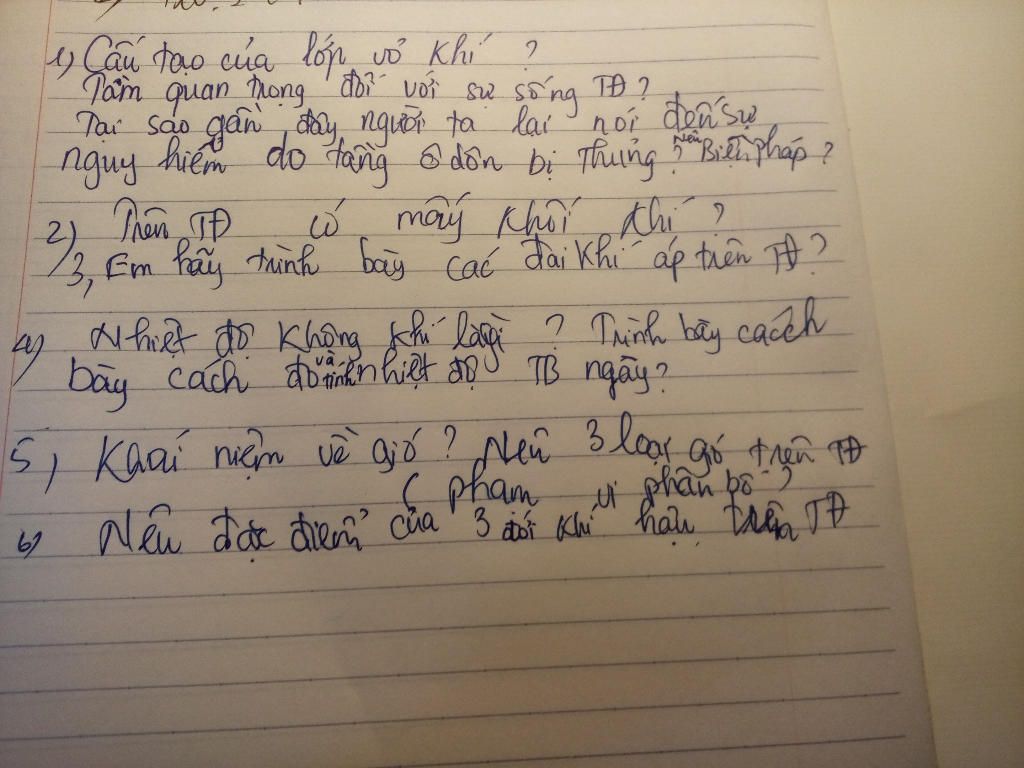 1) Cấu tạo của lớp vỏ khí ?
Tầm quan trọng đối với sự sống TĐ ?
Tại sao gần đây người ta lại nói đến sự
nguy hiểm do tầng ô dôn bị thủng ? Nêu Biện pháp ?
2) Trên TĐ có mấy khối khí ?
3, Em hãy trình bày các đai khí áp trên TĐ ?
4) Nhiệt độ không khí là gì ? Trình bày cách
bày cách đo và tính nhiệt độ TB ngày ?
5, Khái niệm về gió ? Nêu 3 loại gió trên TĐ
( phạm vi phân bố ?
6) Nêu đặc điểm của 3 đới khí hậu trên TĐ